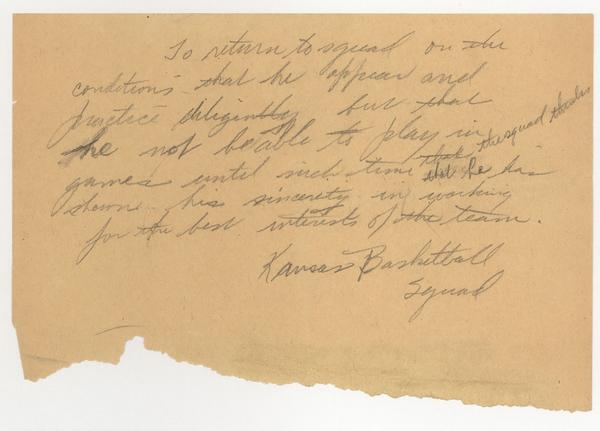 To return to squad on the
conditions that he appear and
practice diligently but that
he not be able to play in
games until such time that the squad thinks
that he has
shown his sincerity in working
for the best interests of the team.
Kansas Basketball
Squad